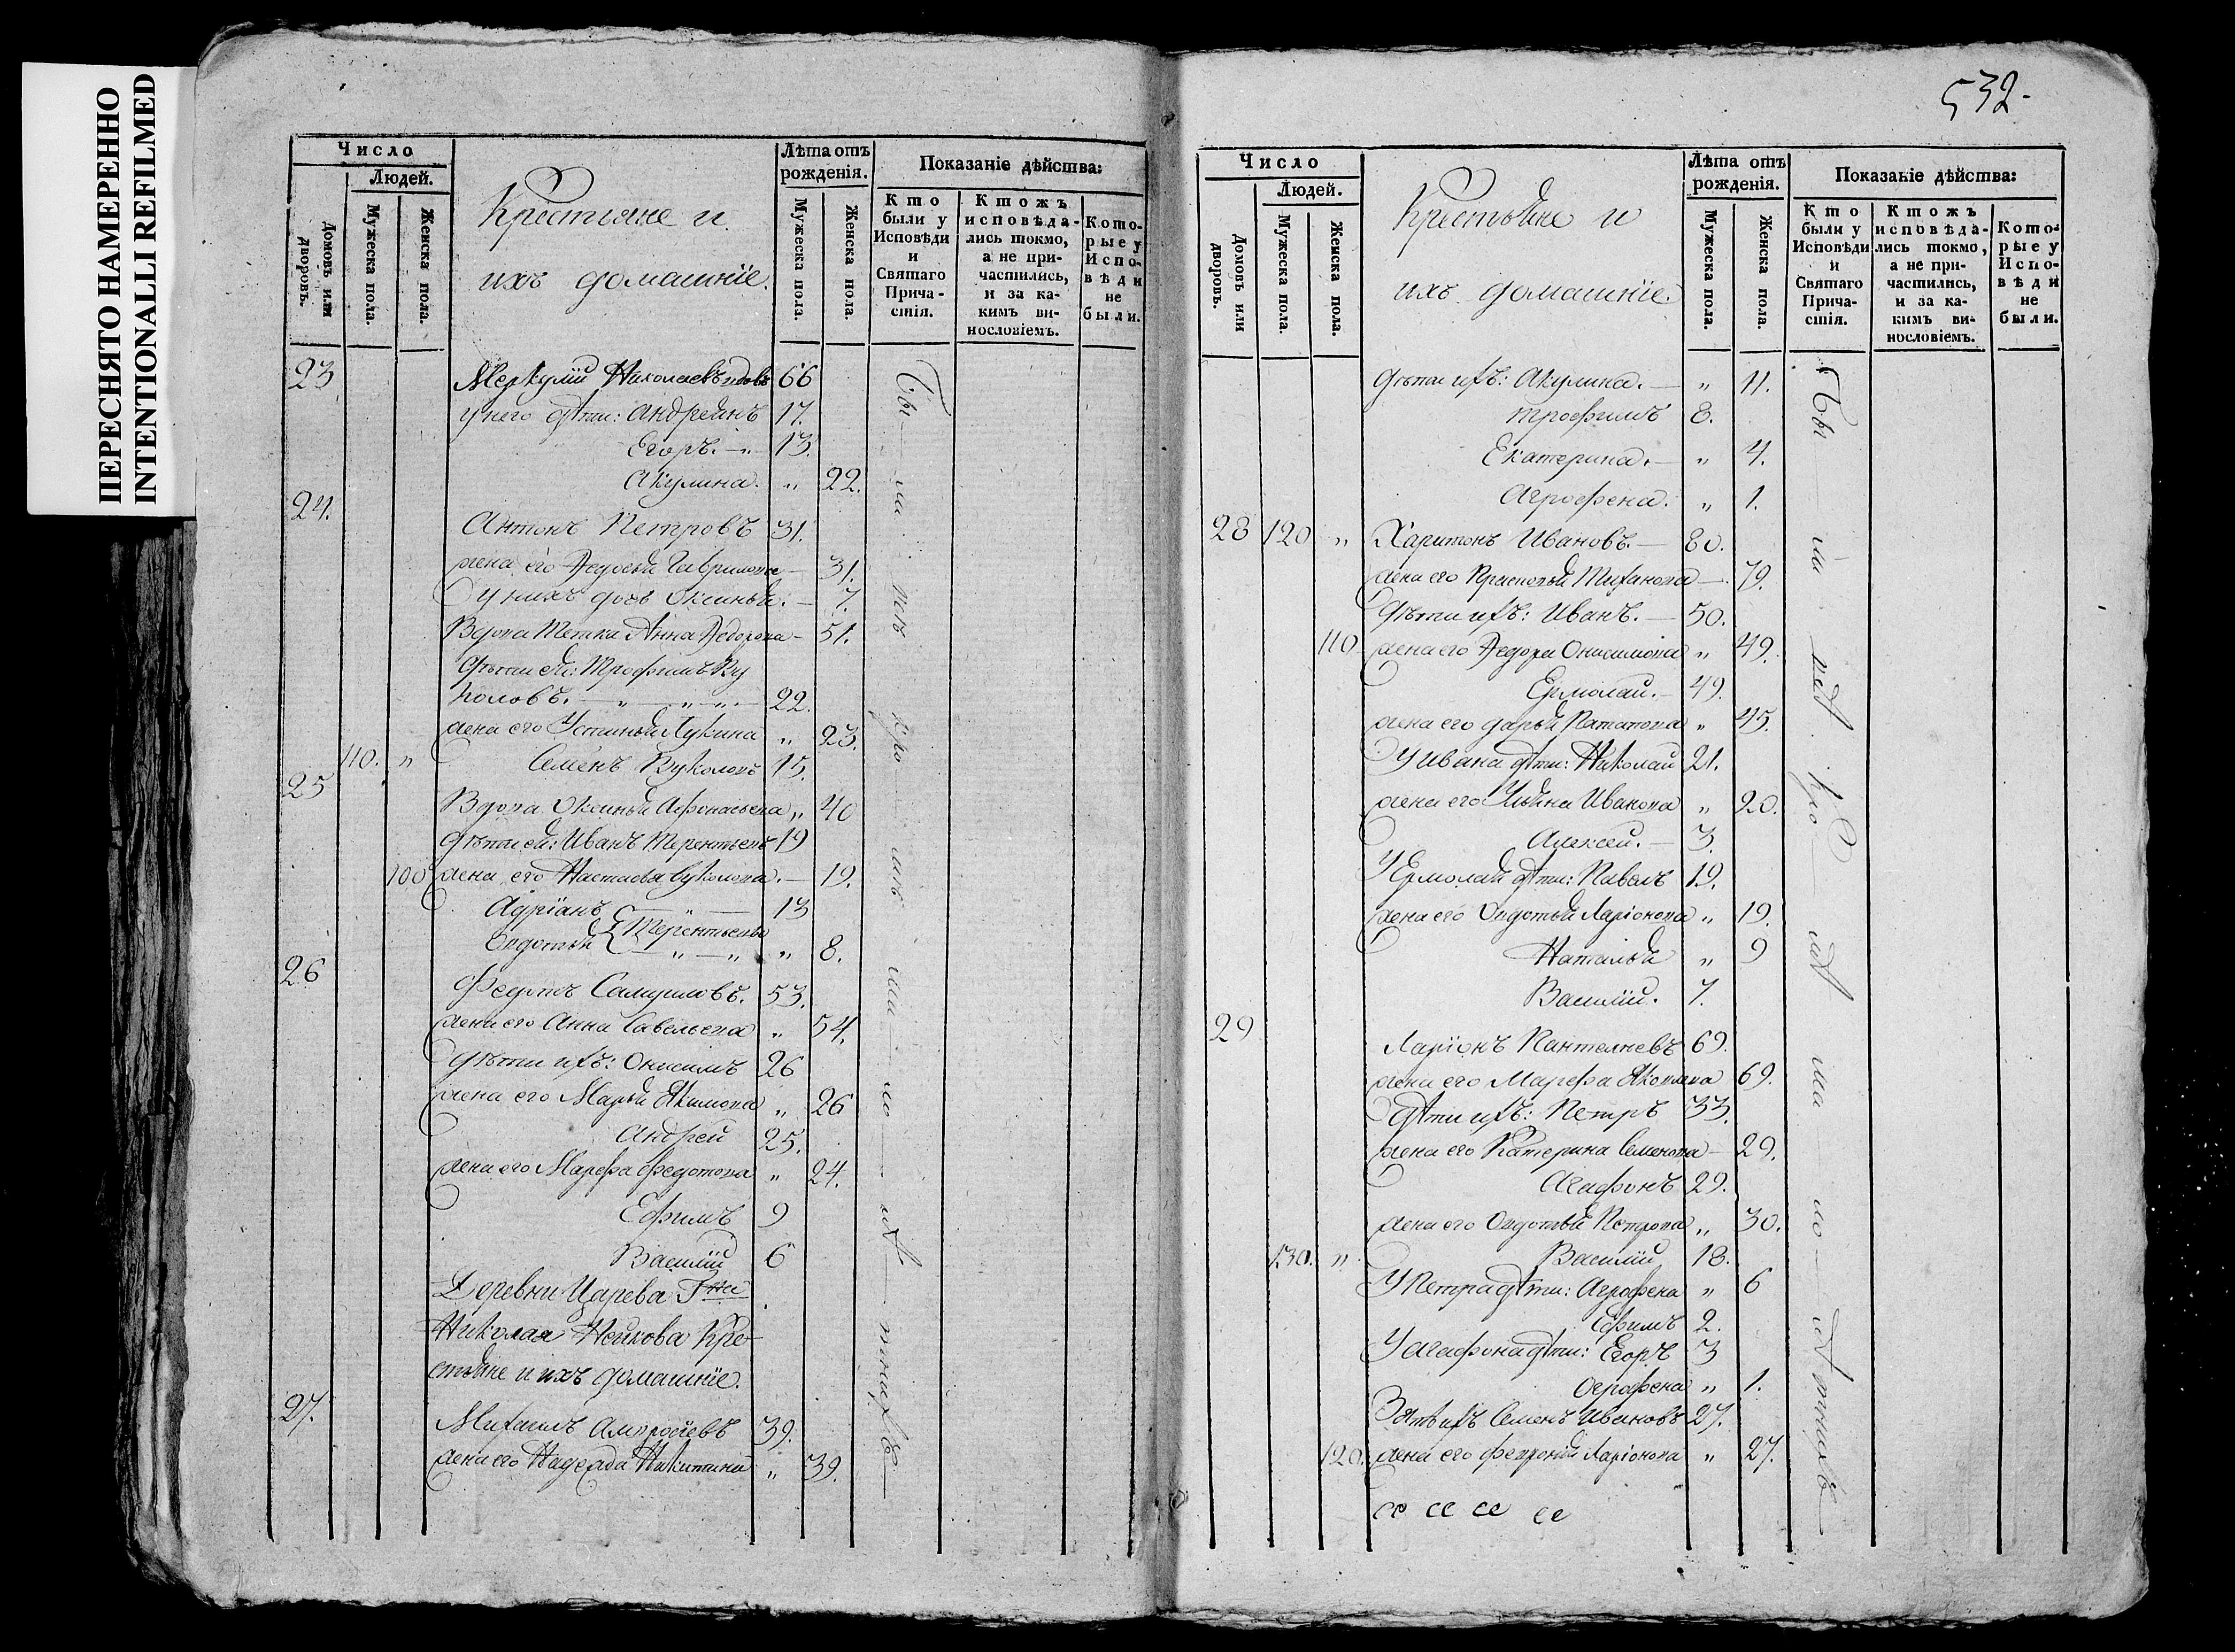 ПЕРЕСНЯТО НАМЕРЕННО
INTENTIONALLI REFILMED
Число
Людей.
Домовъ или дворовъ.
Мужеска пола.
Женска пола.
Крестьяне и
ихъ домашніе.
Лѣта отъ рожденія.
Мужеска пола.
Женска пола.
Показаніе дѣйства:
Кто были у Исповѣди и Святаго Причастія.
Ктожъ исповѣдались токмо, а не причастились, и за какимъ винословіемъ.
Которые у Исповѣди не были.
23 Меркулій Николаевъ вдовъ 66
у него дѣти: Андреянъ 17.
Егоръ. — „ — 13.
Акулина. „ 22.
24.
Антонъ Петровъ 31.
жена его Федосья Гаврилова — 31.
у нихъ дочь Оксинья. — 7.
Вдова тетка Анна Федорова — 51.
дѣти ея: Трофимъ Ву
коловъ. — „ — „ — „ — 22.
жена его Устинья Лукина „ 23.
110. „ Семенъ Вуколовъ 15.
25
Вдова Оксинья Афонасьева „ 40
дѣти ея: Иванъ Терентьевъ 19
100 жена его Настасья Вуколова. — 19.
Адріанъ — „ — 13
Овдотья Терентьевы — „ — „ „ 8.
26
Федотъ Самуиловъ. 53.
жена его Анна Савельева „ 54.
дѣти ихъ: Онисимъ 26
жена его Марья Якимова „ 26
Андрей 25.
жена его Марфа Федотова „ 24.
Ефимъ 9
Василій 6
Деревни Царева Гна
Николая Нейкова Кре-
стьяне и ихъ домашніе.
27.
Михаилъ Амвросіевъ 39.
жена его Надежда Никитина „ 39.
Бы — ли у исповѣди
532-
Число
Людей.
Домовъ или дворовъ.
Мужеска пола.
Женска пола.
Крестьяне и
ихъ домашніе.
Лѣта отъ рожденія.
Мужеска пола.
Женска пола.
Показаніе дѣйства:
Кто были у Исповѣди и Святаго Причастія.
Ктожъ исповѣдались токмо, а не причастились, и за какимъ винословіемъ.
Которые у Исповѣди не были.
дѣти ихъ: Акулина. — „ 11.
Трофимъ 8.
Екатерина. — „ 4.
Агрофена. „ 1.
28 120 „ Харитонъ Ивановъ. — 80.
жена его Прасковья Тиханова — 79.
дѣти ихъ: Иванъ. — 50.
110 жена его Федора Онисимова „ 49.
Ермолай. — 49.
жена его Дарья Потапова „ 45.
У Ивана дѣти: Николай 21.
жена его Ульяна Иванова „ 20.
Алексей. — 3.
У Ермолая дѣти: Павелъ 19.
жена его Овдотья Ларіонова „ 19.
Наталья „ 9
Василій. 7.
29
Ларіонъ Пантелиевъ 69.
жена его Марфа Яковлева 69.
дѣти ихъ: Петръ 33.
жена его Катерина Семенова — 29.
Агафонъ 29.
жена его Овдотья Петрова „ 30.
130. „ Василій 18.
У Петра дѣти: Агрофена „ 6
Ефимъ 2.
У Агафона дѣти: Егоръ 3
Огрофена „ 1.
Зять ихъ Семенъ Ивановъ 27.
120. жена его Февронія Ларіонова „ 27.